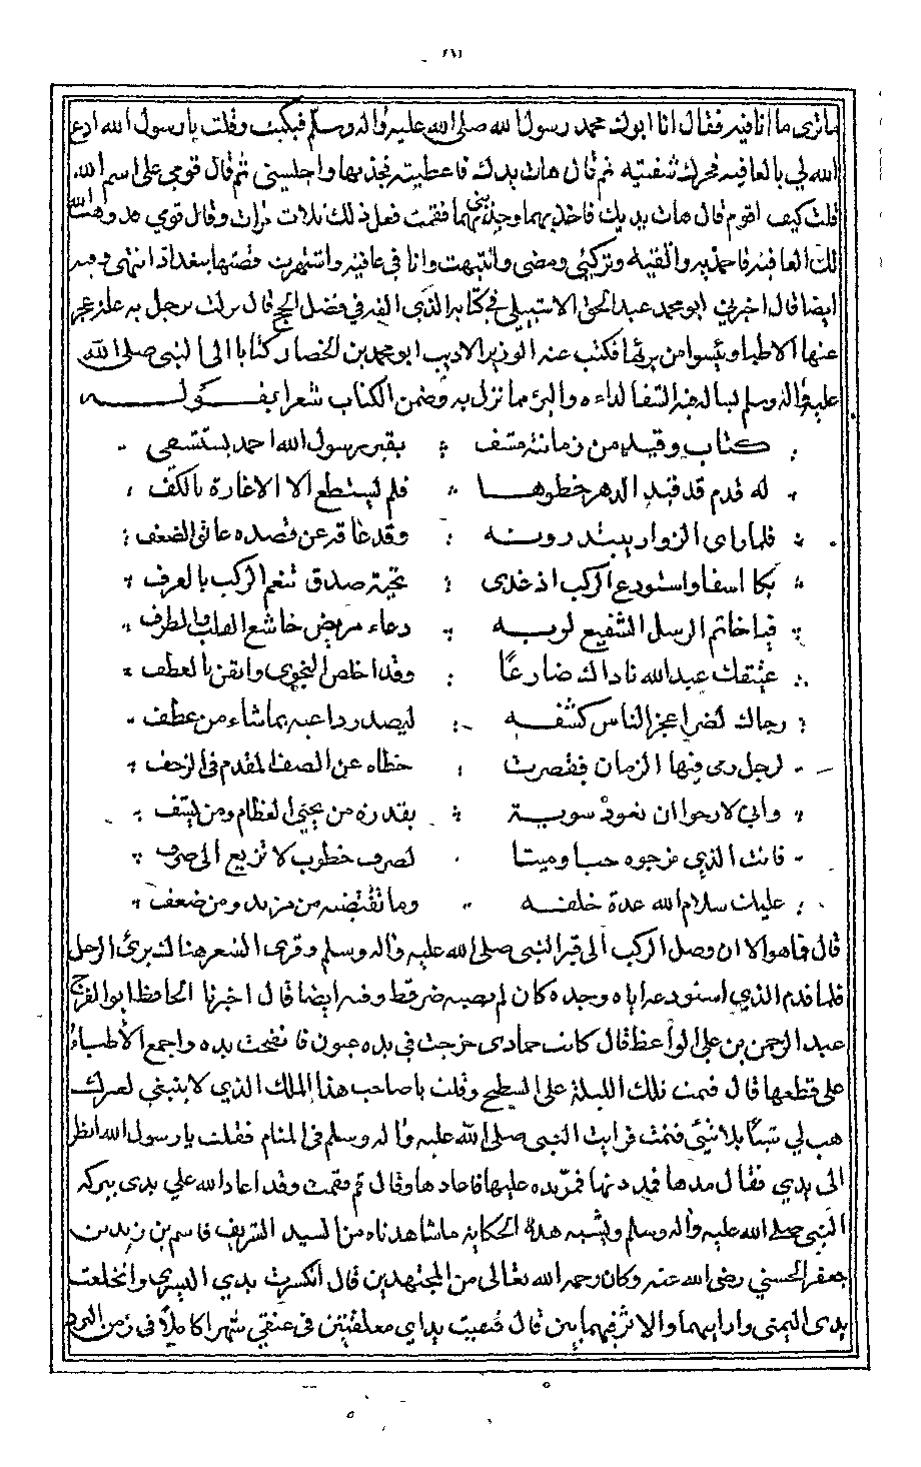 ٢٦١
ماترى ما انا فيه فقال انا ابوك محمد رسول الله صلى الله عليه وآله وسلم فبكيت وقلت يا رسول الله ادع
الله لي بالعافيه فحرك شفتيه ثم قال هات يدك فاعطيته فجذبها واجلسني ثم قال قومي على اسم الله
قلت كيف اقوم قال هات يديك فاخذ بهما وجذبني بهما فقمت فعل ذلك ثلاث مرات وقال قومي قد وهبت
لك العافيه فاحمديه واتقيه وتركني ومضى وانتبهت وانا في عافيه واشتهرت قصتها ببغداد انتهى وفيه
ايضا قال اخبرني ابو محمد عبد الحق الاشبيلي في كتابه الذي الفه في فضل الحج قال نزلت برجل به علة وعجز
عنها الاطبا ويئسوا من برئها فكتب عنه الوزير الاديب ابو محمد بن الخصار كتابا الى النبي صلى الله
عليه وآله وسلم يساله فيه الشفا لداءه والبرء مما نزل به وضمن الكتاب شعرا بقوله
كتاب وقيد من زمانته مشف بقبر رسول الله احمد يستشفي
له قدم قد قيد الدهر خطوها فلم يستطع الا الاشارة بالكف
فلما راى الزوار يبتدرونه وقد عاقه عن قصده عائق الضعف
بكا اسفا واستودع الركب اذ غدى تحية صدق تفعم الركب بالعرف
فيا خاتم الرسل الشفيع لربه دعاء مريض خاشع القلب والطرف
عتيقك عبد الله ناداك ضارعًا وقد اخلص النجوى وايقن بالعطف
رجاك لضر اعجز الناس كشفه ليصدر داعيه بما شاء من عطف
لرجل رمى فيها الزمان فقصرت خطاه عن الصف المقدم في الزحف
واني لارجوا ان تعود سوية بقدرة من يحيى العظام ومن يشف
فانت الذي نرجوه حيا وميتا لصرف خطوب لا تريع الى صرف
عليك سلام الله عدة خلفه وما تقتضيه من مزيد ومن ضعف
قال فما هو الا ان وصل الركب الى قبر النبي صلى الله عليه وآله وسلم وقرى الشعر هناك برئ الرجل
فلما قدم الذي استودعه اياه وجده كان لم يصبه ضر قط وفيه ايضا قال اخبرنا الحافظ ابو الفرج
عبد الرحمن بن علي الواعظ قال كانت حمادى خرجت في يده عيون فانفخت يده واجمع الاطباء
على قطعها قال فبت تلك الليلة على السطح وقلت يا صاحب هذا الملك الذي لا ينبغي لغيرك
هب لي شيئا بلا شيئ فنمت فرايت النبي صلى الله عليه وآله وسلم في المنام فقلت يا رسول الله انظر
الى يدي فقال مدها فمددتها فمر يده عليها فاعادها وقال قم فقمت وقد اعاد الله علي يدى ببركة
النبي صلى الله عليه وآله وسلم ويشبه هذة الحكاية ما شاهدناه من السيد الشريف قاسم بن زيد بن
جعفر الحسني رضي الله عنه وكان رحمه الله تعالى من المجتهدين قال انكسرت يدي اليسرى وانخلعت
يدى اليمنى وارانيهما والاثر فيهما بين قال فبقيت يداي معلقتين في عنقي شهرا كاملا في زمن البرد